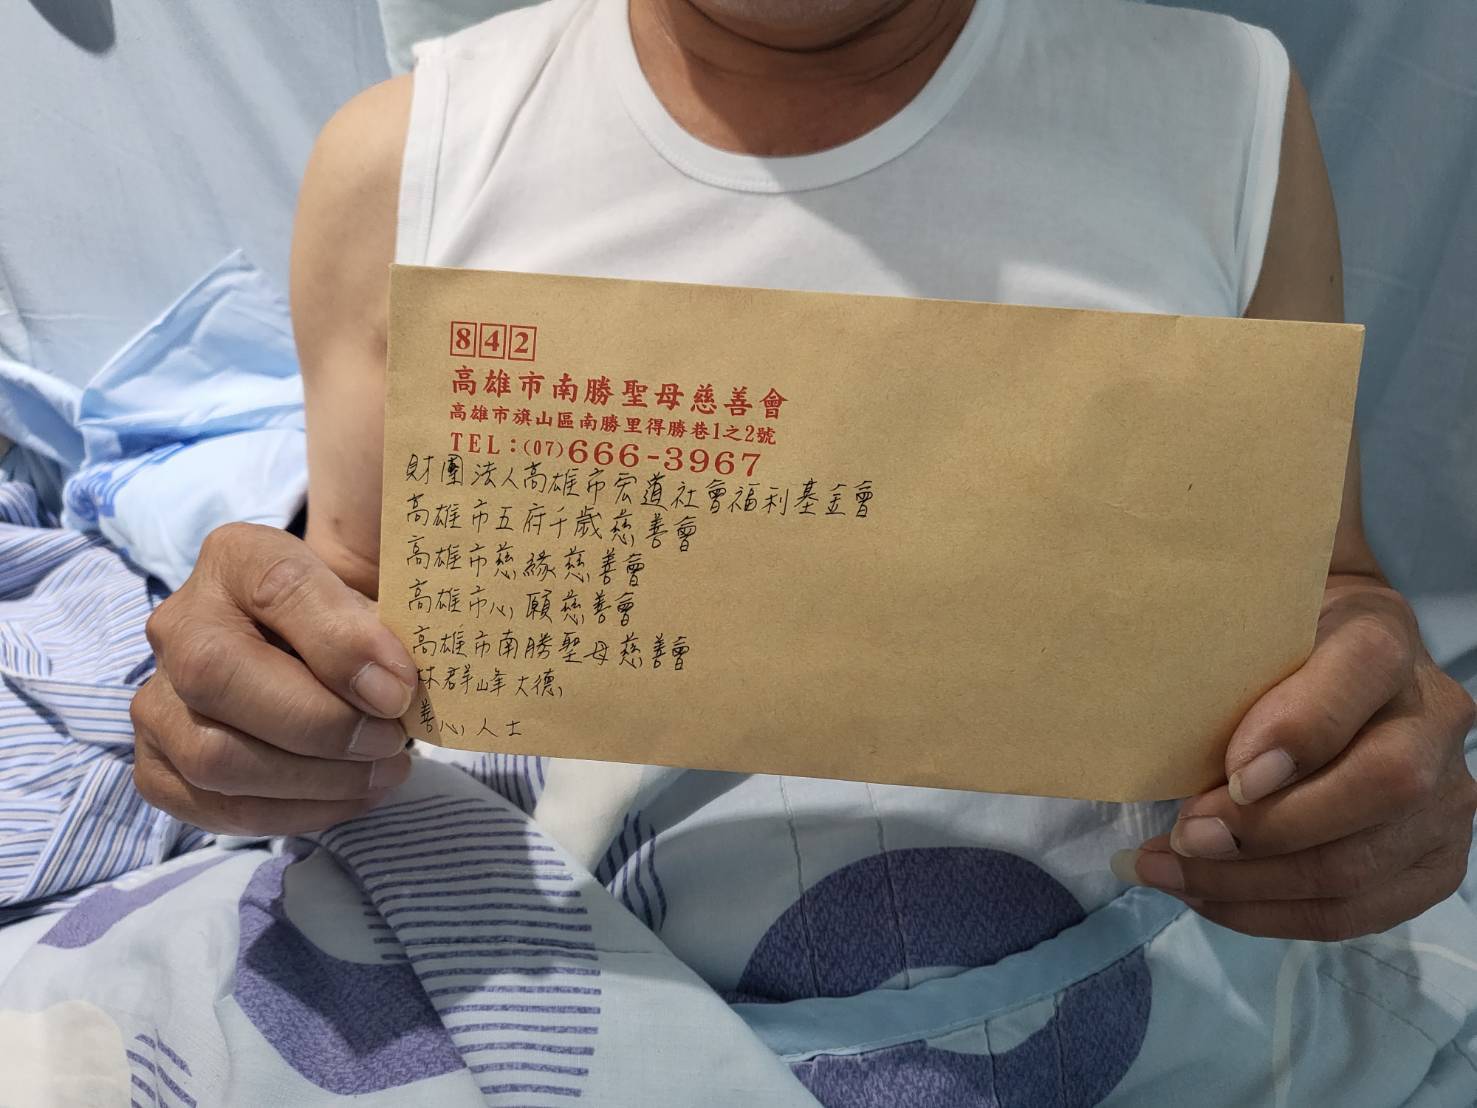 842
高雄市南勝聖母慈善會
高雄市旗山區南勝里得勝巷1之2號
TEL：(07)666-3967
財團法人高雄市宏道社會福利基金會
高雄市五府千歲慈善會
高雄市慈緣慈善會
高雄市心願慈善會
高雄市南勝聖母慈善會
林群峰大德
善心人士